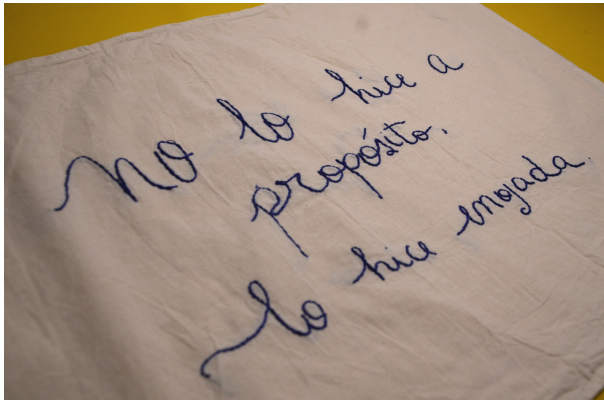 No lo hice a
propósito,
lo hice enojada.